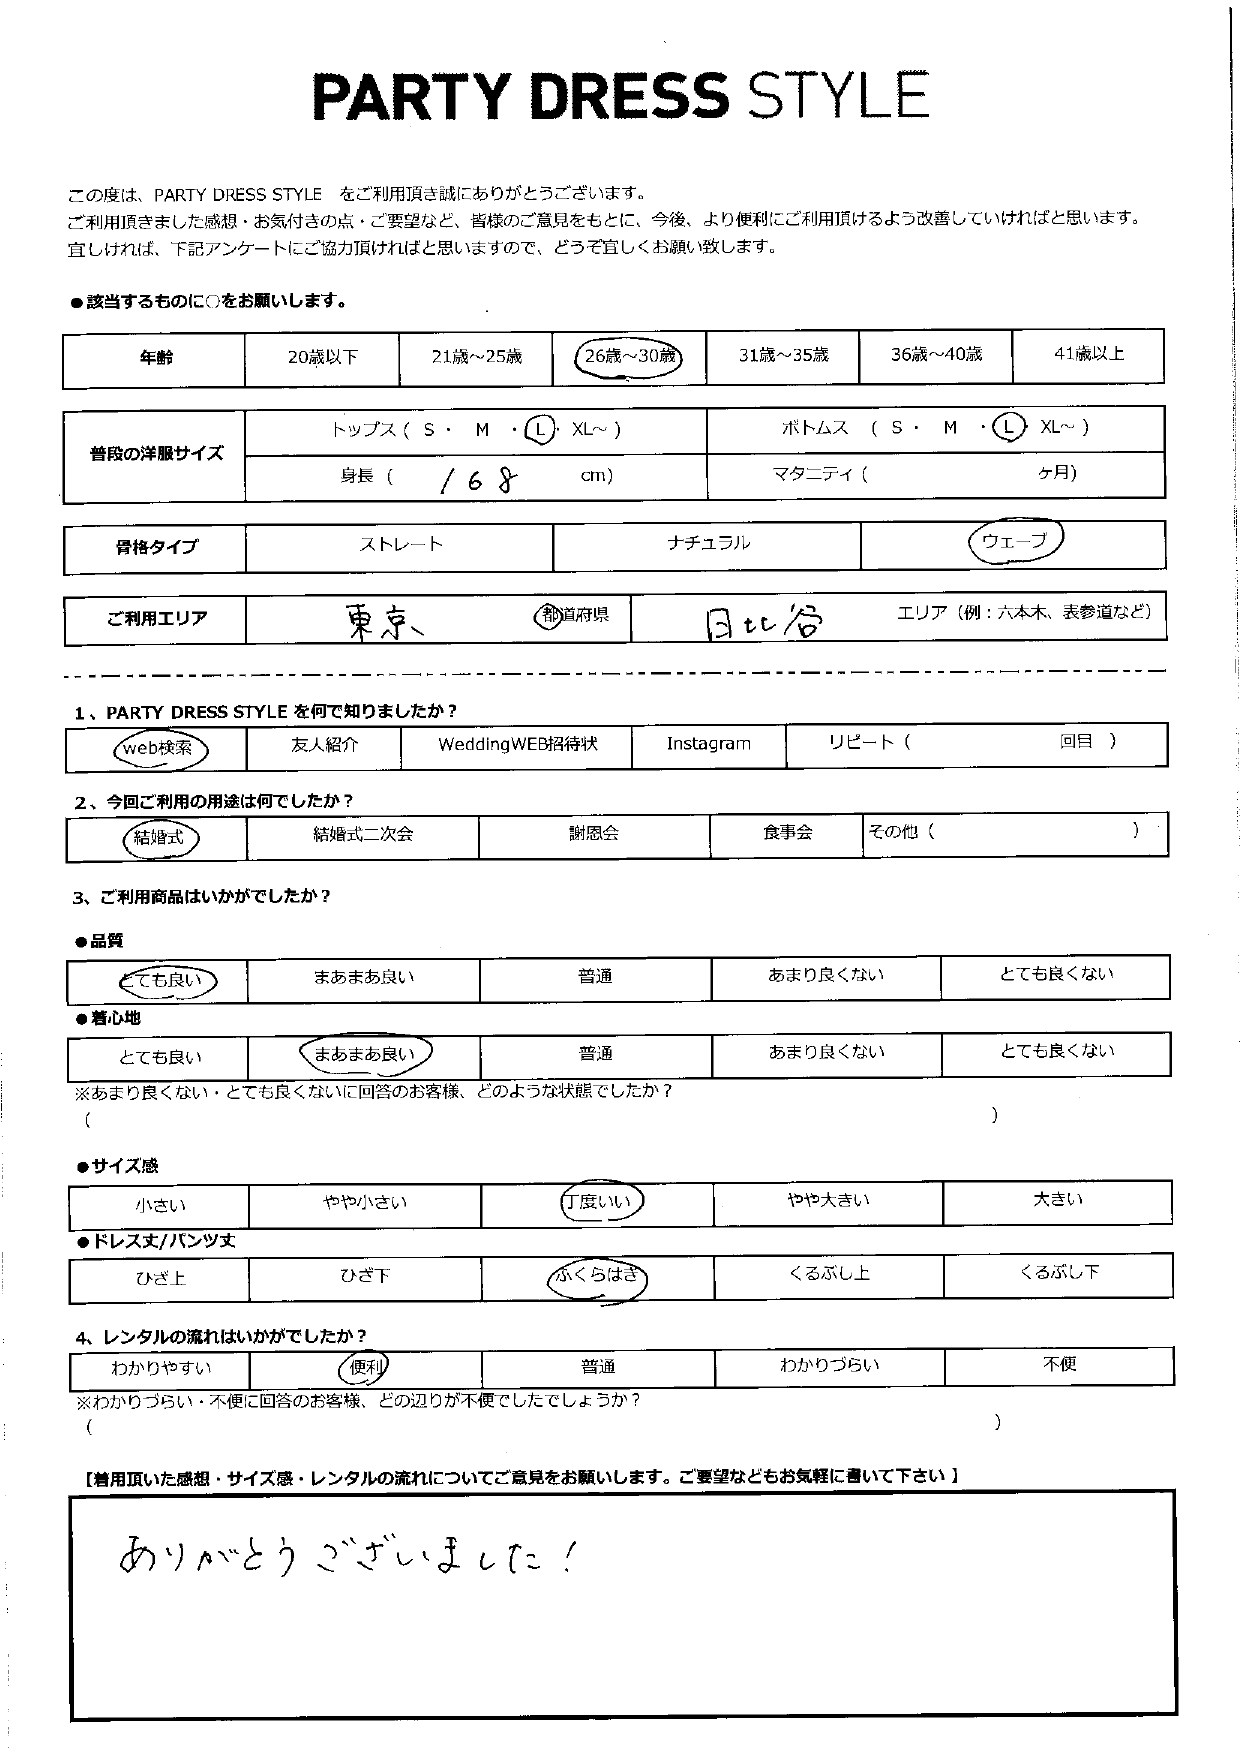 PARTY DRESS STYLE
この度は、PARTY DRESS STYLE をご利用頂き誠にありがとうございます。
ご利用頂きました感想・お気付きの点・ご要望など、皆様のご意見をもとに、今後、より便利にご利用頂けるよう改善していければと思います。
宜しければ、下記アンケートにご協力頂ければと思いますので、どうぞ宜しくお願い致します。
●該当するものに○をお願いします。
年齢 20歳以下 21歳～25歳 26歳～30歳 31歳～35歳 36歳～40歳 41歳以上
普段の洋服サイズ
トップス ( S ・ M ・ L ・ XL～ ) ボトムス ( S ・ M ・ L ・ XL～ )
身長 ( 168 cm) マタニティ ( ヶ月)
骨格タイプ ストレート ナチュラル ウェーブ
ご利用エリア 東京 都道府県 日比谷 エリア（例：六本木、表参道など）
1、PARTY DRESS STYLE を何で知りましたか？
web検索 友人紹介 WeddingWEB招待状 Instagram リピート ( 回目 )
2、今回ご利用の用途は何でしたか？
結婚式 結婚式二次会 謝恩会 食事会 その他 ( )
3、ご利用商品はいかがでしたか？
●品質
とても良い まあまあ良い 普通 あまり良くない とても良くない
●着心地
とても良い まあまあ良い 普通 あまり良くない とても良くない
※あまり良くない・とても良くないに回答のお客様、どのような状態でしたか？
( )
●サイズ感
小さい やや小さい 丁度いい やや大きい 大きい
●ドレス丈/パンツ丈
ひざ上 ひざ下 ふくらはぎ くるぶし上 くるぶし下
4、レンタルの流れはいかがでしたか？
わかりやすい 便利 普通 わかりづらい 不便
※わかりづらい・不便に回答のお客様、どの辺りが不便でしたでしょうか？
( )
【着用頂いた感想・サイズ感・レンタルの流れについてご意見をお願いします。ご要望などもお気軽に書いて下さい】
ありがとうございました！